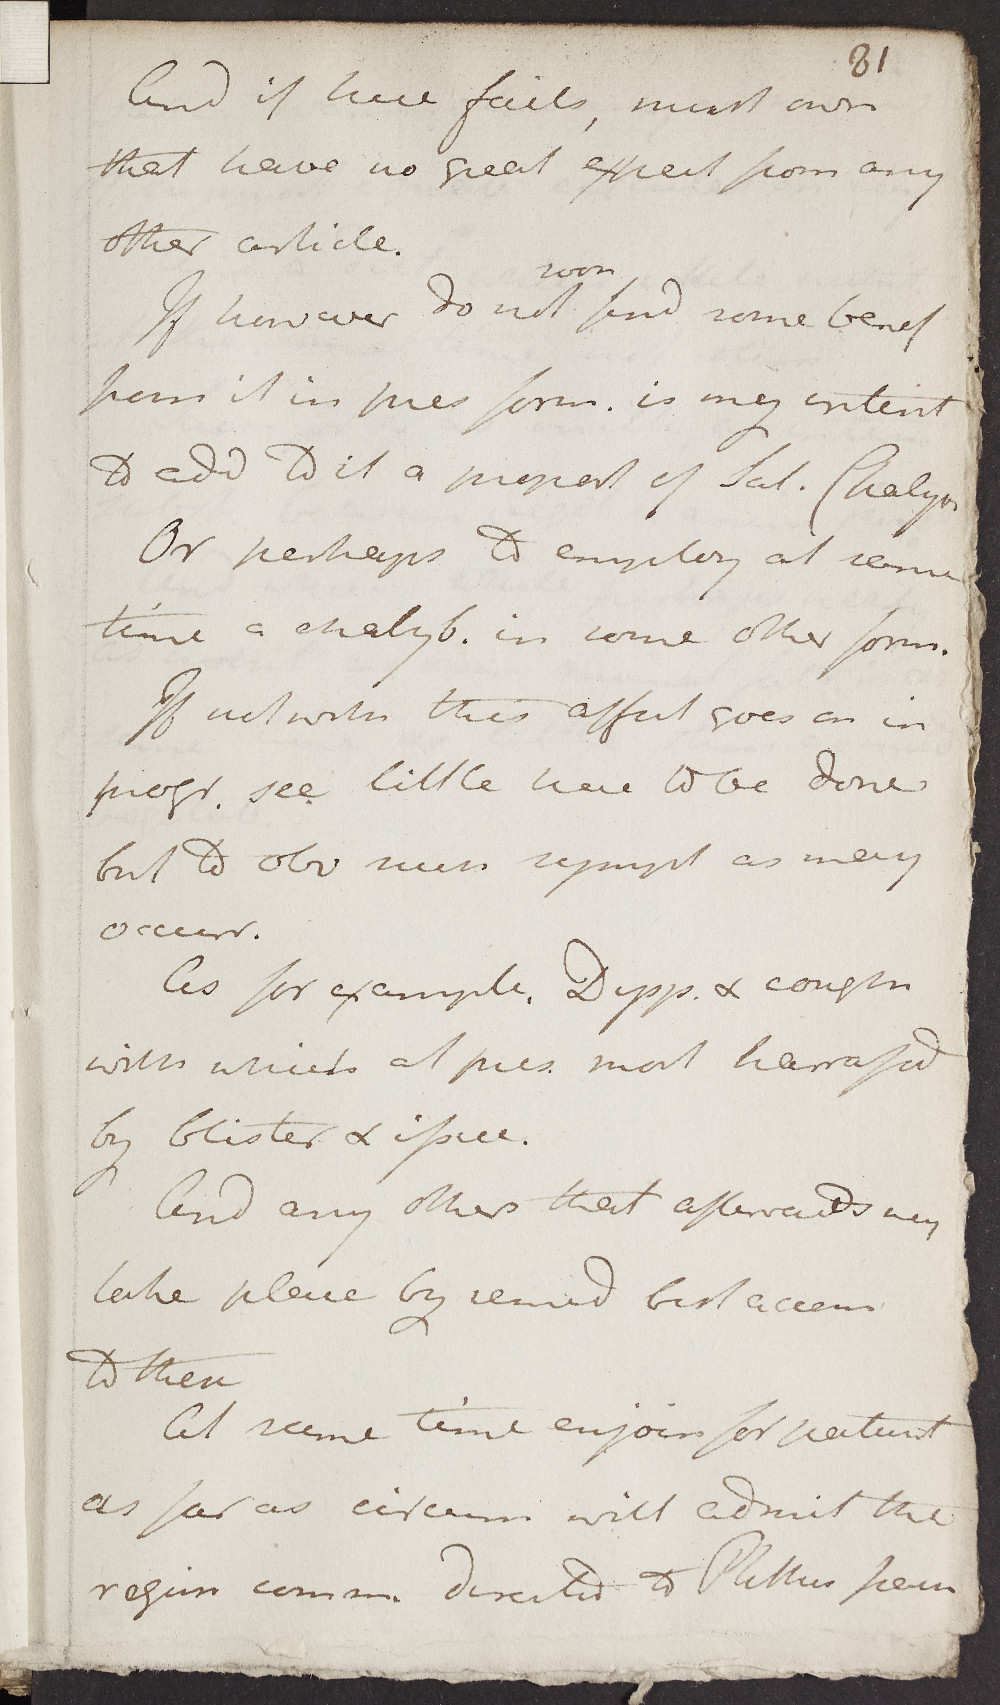 81
And if here fails, must own
that have no great expect from any
other article.
soon
If however do not find some benef
from it in pres form. is my intent
to add to it a proport of Sal. Chalyb
Or perhaps to employ at same
time a chalyb. in some other form.
If notwith this affect goes on in
progr. see little here to be done
but to obv urgen sympt as may
occurr.
As for example. Dypp. & cough
with which at pres. most harrassed
by blister & issue.
And any others that afterwards may
take place by remed best accom
to them
At same time enjoin for patient
as far as circum will admit the
regim comm. directed to Phthis from